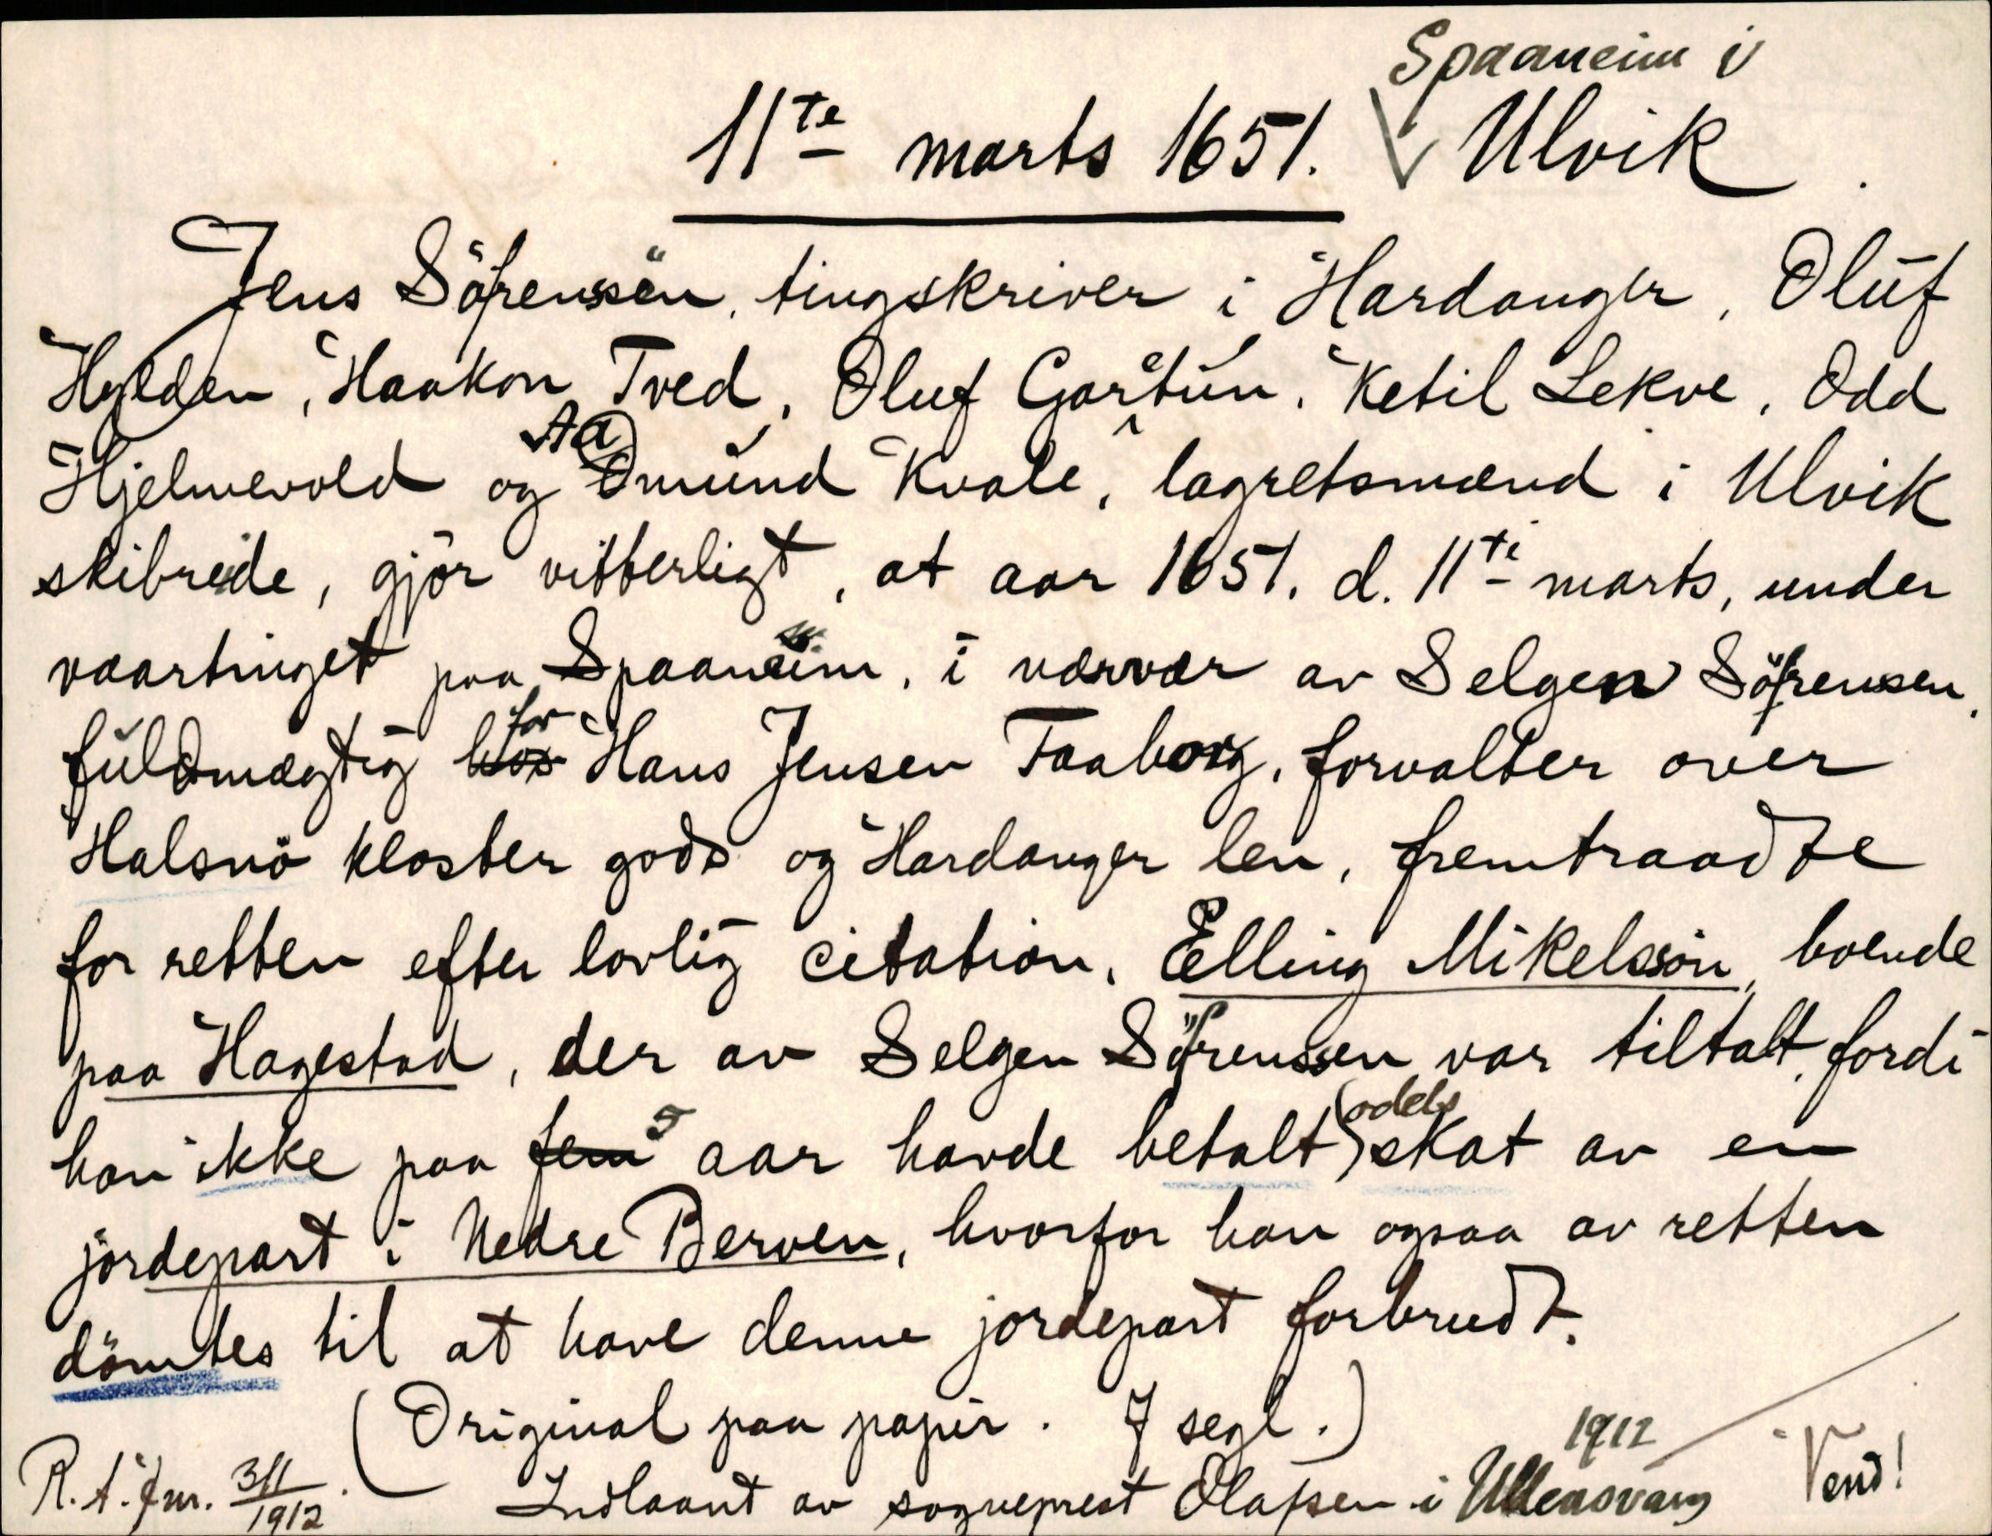 Spaaneim i
11te marts 1651. Ulvik
Jens Sörenssön, tingskriver i Hardanger, Oluf
Hylden, Haakon Tved, Oluf Gartun, Ketil Lekve, Odd
Hjelmevold og Aamund Kvale, lagretsmænd i Ulvik
skibreide, gjör vitterligt, at aar 1651. d. 11te marts, under
vaartinget paa Spaaneim, i nærvær av Selgen Sörensen,
fuldmægtig hos for Hans Jensen Faaborg, forvalter over
Halsnö kloster gods og Hardanger len, fremtraadte
for retten efter lovlig citation, Elling Mikelssön, boende
paa Hagestad, der av Selgen Sörenssen var tiltalt, fordi
han ikke paa fem 5 aar havde betalt odelsskat av en
jordepart i Nedre Berven, hvorfor han ogsaa av retten
dömtes til at have denne jordepart forbrudt.
(Original paa papir. 7 segl.)
R.A. Jnr. 311/1912. Indlaant av sogneprest Olafsen i Ullensvang 1912
Vend!